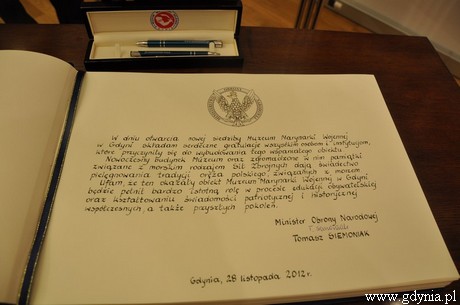 W dniu otwarcia nowej siedziby Muzeum Marynarki Wojennej
w Gdyni składam serdeczne gratulacje wszystkim osobom i instytucjom,
które przyczyniły się do wybudowania tego wspaniałego obiektu.
Nowoczesny budynek Muzeum oraz zgromadzone w nim pamiątki
związane z morskim rodzajem Sił Zbrojnych dają świadectwo
pielęgnowania tradycji oręża polskiego, związanych z morzem.
Ufam, że ten okazały obiekt Muzeum Marynarki Wojennej w Gdyni
będzie pełnił bardzo istotną rolę w procesie edukacji obywatelskiej
oraz kształtowaniu świadomości patriotycznej i historycznej
współczesnych, a także przyszłych pokoleń.
Minister Obrony Narodowej
Tomasz SIEMONIAK
Gdynia, 28 listopada 2012 r.
www.gdynia.pl